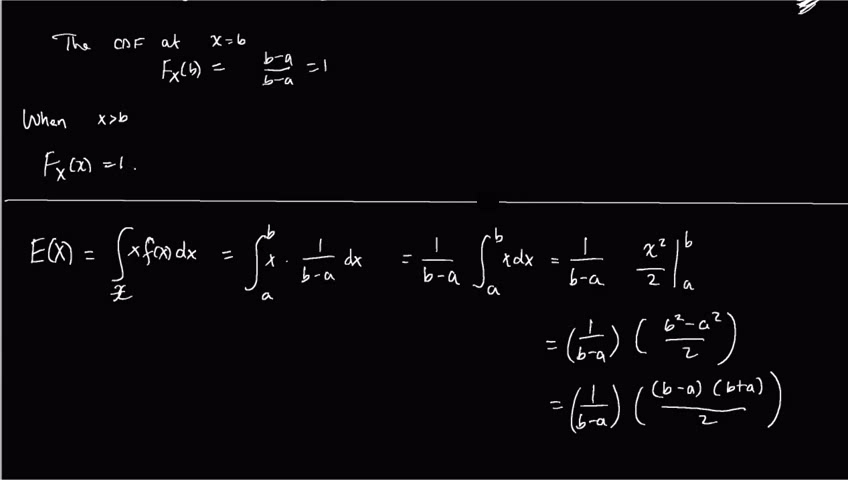 The CDF at x=b
F_X(b) = \frac{b-a}{b-a} = 1
When x>b
F_X(x) = 1.
E(X) = \int_x x f(x) dx = \int_a^b x \cdot \frac{1}{b-a} dx = \frac{1}{b-a} \int_a^b x dx = \frac{1}{b-a} \frac{x^2}{2} |_a^b
= (\frac{1}{b-a}) (\frac{b^2-a^2}{2})
= (\frac{1}{b-a}) (\frac{(b-a)(b+a)}{2})